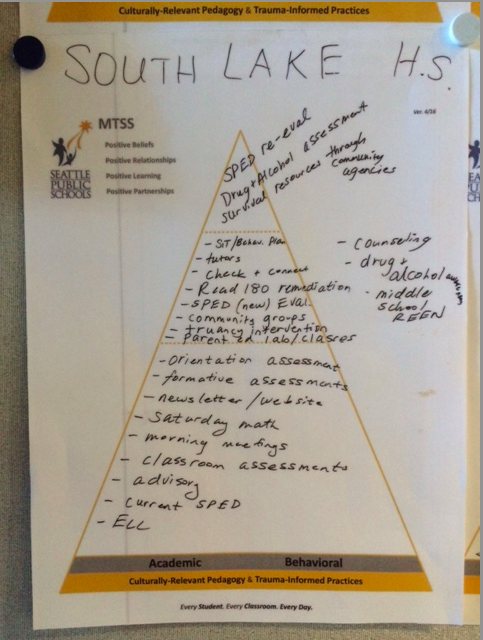 Culturally-Relevant Pedagogy & Trauma-Informed Practices
SOUTH LAKE H.S.
Ver. 4/16
MTSS
Positive Beliefs
Positive Relationships
Positive Learning
Positive Partnerships
SEATTLE
PUBLIC
SCHOOLS
SPED re-eval
Drug + Alcohol assessment
survival resources through
community
agencies
- SIT/Behav. Plan
- tutors
- check + connect
- Read 180 remediation
- SPED (new) Eval.
- community groups
- truancy intervention
- Parent ed lab/classes
- counseling
- drug +
alcohol
- middle
school
REEN
- orientation assessment
- formative assessments
- newsletter/website
- Saturday math
- morning meetings
- classroom assessments
- advisory
- Current SPED
- ELL
Academic Behavioral
Culturally-Relevant Pedagogy & Trauma-Informed Practices
Every Student. Every Classroom. Every Day.